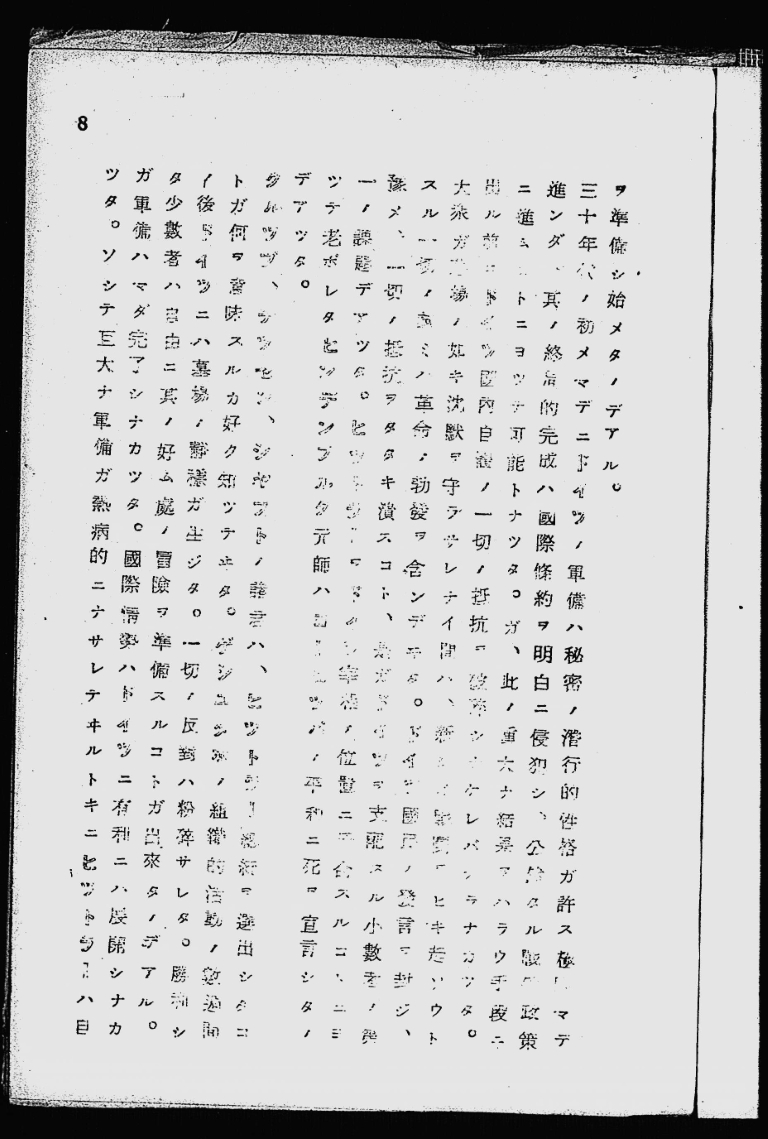 ヲ準備シ始メタノデアル。
三十年代ノ初メマデニドイツノ軍備ハ秘密ノ潜行的性格ガ許ス極　マデ
進ンダ、其ノ終　的完成ハ國際條約ヲ明白ニ侵犯シ、公　タル　政策
ニ進ムコトニヨツテ可能トナツタ。ガ、此ノ重大ナ結果ヲハラウ手段ニ
出ル前ニドイツ國内自　ノ一切ノ抵抗ヲ　シナケレバナラナカツタ。
大衆ガ墓場ノ如キ沈默ヲ守　ナイ間ハ、新　ヒキ起ソウト
スル一切ノ　ミハ革命ノ勃發ヲ含ンデヰタ。ドイツ國民ノ發言ヲ封ジ、
豫メ、一切ノ抵抗ヲタタキ潰スコト、是ガドイツヲ支配スル小數者ノ
一ノ課題デアツタ。ヒツトラーヲドイツ宰相ノ位置ニ　スルコトニヨ
ツテ老ボレタヒンデンブルク元師ハヨーロツパノ平和ニ死ヲ宣言シタノ
デアツタ。
クルツプ、テツセン、シヤフトノ諸君ハ、ヒツトラー　ヲ選出シタコ
トガ何ヲ意味スルカ好ク知ツテヰタ。ゲシユタポノ組織的活動ノ數週間
ノ後ドイツニハ墓場ノ靜　ガ生ジタ。一切ノ反對ハ粉碎サレタ。勝利シ
タ少數者ハ自由ニ其ノ好ム處ノ冒險ヲ準備スルコトガ出來タノデアル。
ガ軍備ハマダ完了シナカツタ。國際情勢ハドイツニ有利ニハ展開シナカ
ツタ。ソシテ巨大ナ軍備ガ熱病的ニナサレテヰルトキニヒツトラーハ自
8